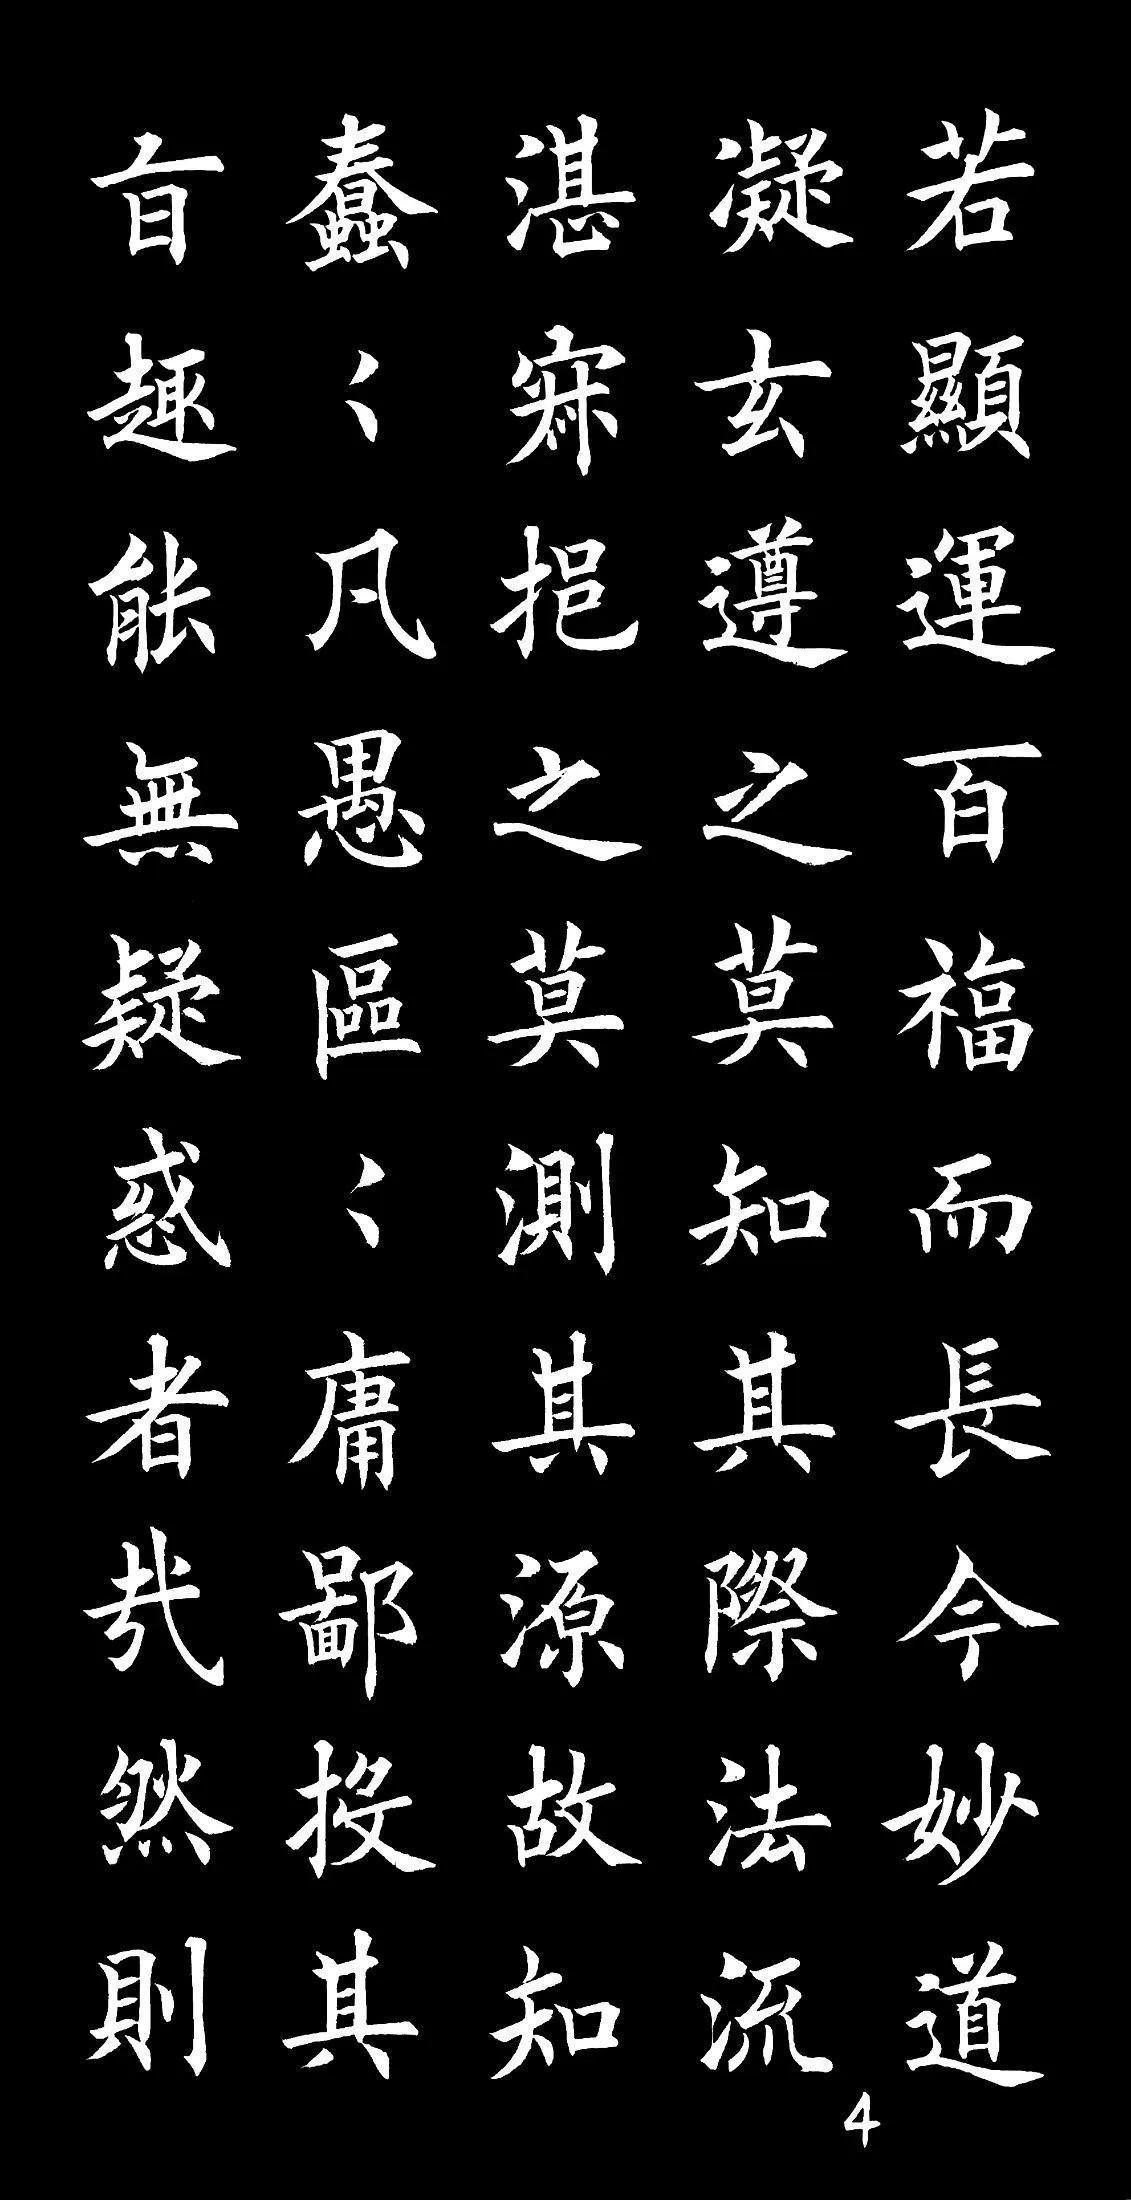 若顯運百福而長今妙道
凝玄遵之莫知其際法流
湛寂挹之莫測其源故知
蠢〻凡愚區〻庸鄙投其
旨趣能無疑惑者哉然則
4